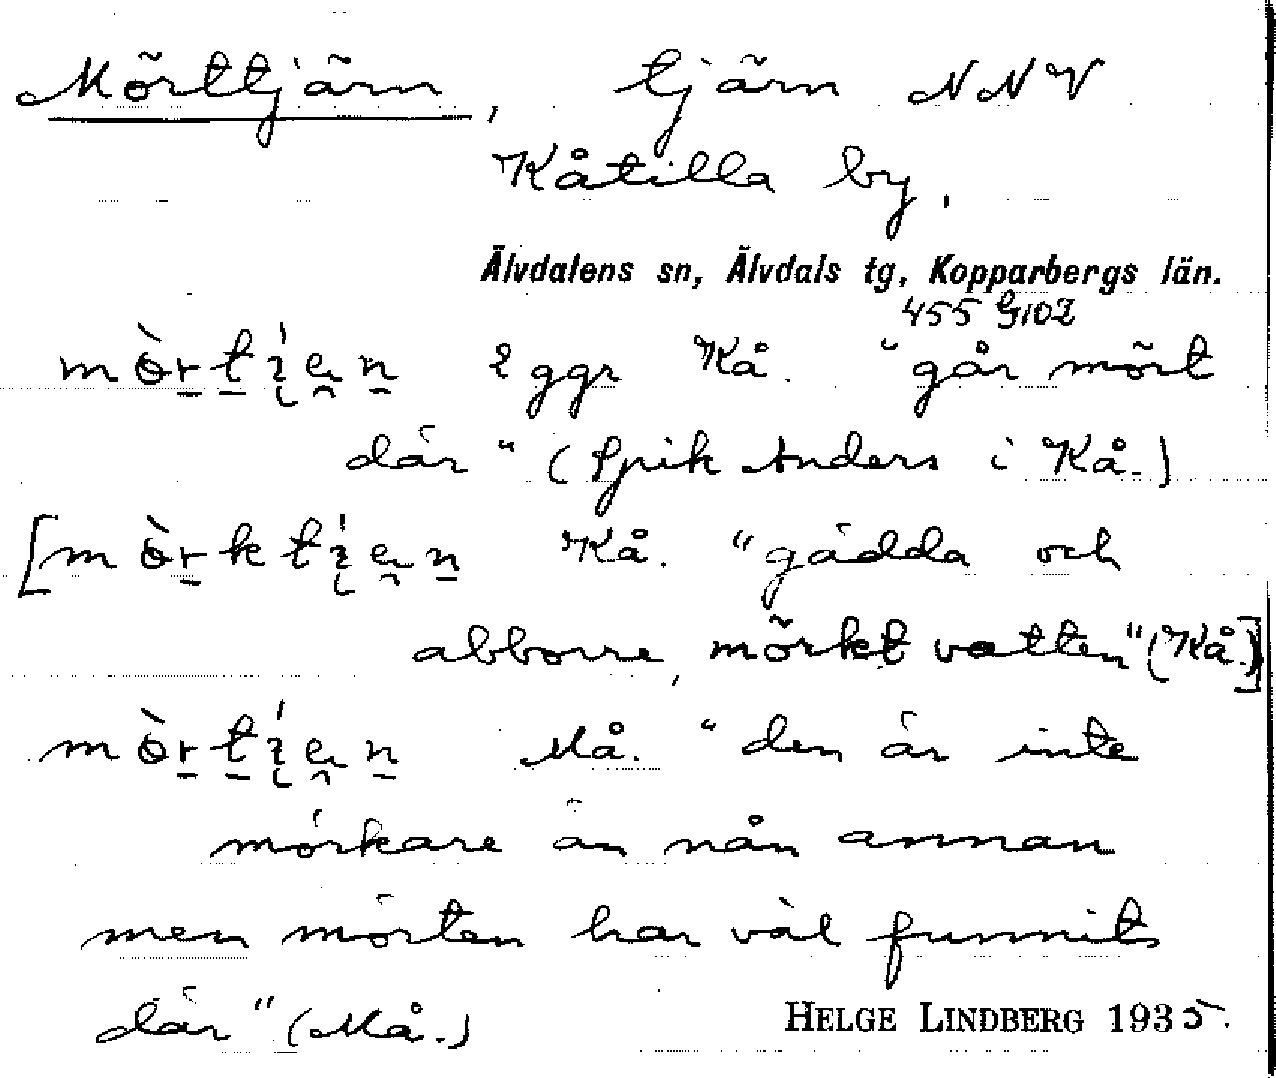 Mörttjärn, tjärn NNV
Kåtilla by.
Älvdalens sn, Älvdals tg, Kopparbergs län.
455 G10Z
2 ggr Kå. "går mört
där" (Spik Anders i Kå.)
[ Kå. "gädda och
abborre, mörkt vatten" (Kå.)]
Må. "den är inte
mörkare än nån annan
men mörten har väl funnits
där" (Må.)
HELGE LINDBERG 1935.